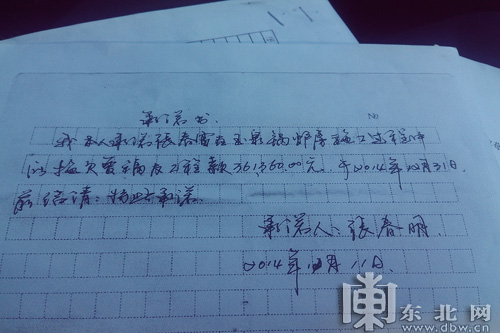 承诺书
No
我本人承诺张春富在玉泉锅炉房施工过程中
的拖欠费稿及工程款361560.00元,于2014年12月31日
前给清:特此承诺.
承诺人:张春明.
2014年12月11日.
东北网
www.dbw.cn